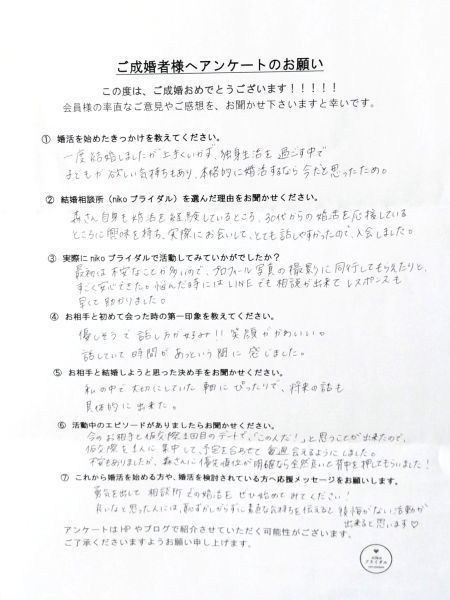 ご成婚者様へアンケートのお願い
この度は、ご成婚おめでとうございます！！！！！
会員様の率直なご意見やご感想を、お聞かせ下さいますと幸いです。
① 婚活を始めたきっかけを教えてください。
一度結婚しましたが上手くいかず、独身生活を過ごす中で
子どもが欲しい気持ちもあり、本格的に婚活するなら今だと思ったため。
② 結婚相談所（nikoブライダル）を選んだ理由をお聞かせください。
森さん自身も婚活を経験しているところ、30代からの婚活を応援している
ところに興味を持ち、実際にお会いして、とても話しやすかったので、入会しました。
③ 実際にnikoブライダルで活動してみていかがでしたか？
最初は不安なことが多いので、プロフィール写真の撮影に同行してもらえたりと、
すごく安心できた。悩んだ時にはLINEでも相談が出来てレスポンスも
早くて助かりました。
④ お相手と初めて会った時の第一印象を教えてください。
優しそうで話し方が好み!! 笑顔がかわいい。
話していて時間があっという間に感じました。
⑤ お相手と結婚しようと思った決め手をお聞かせください。
私の中で大切にしていた軸にぴったりで、将来の話も
具体的に出来た。
⑥ 活動中のエピソードがありましたらお聞かせください。
今のお相手と仮交際1回目のデートで、「この人だ！」と思うことが出来たので、
仮交際を1人に集中して、予定を合わせて毎週会えるようにしました。
不安もありましたが、森さんに優先順位が明確なら全然良いと背中を押してもらいました！
⑦ これから婚活を始める方や、婚活を検討されている方へ応援メッセージをお願いします。
勇気を出して相談所での婚活をぜひ始めてみてください！
良いなと思った人には、恥ずかしがらずに素直な気持ちを伝えると後悔がない活動が
出来ると思います♡
アンケートはHPやブログで紹介させていただく可能性がございます。
ご了承くださいますようお願い申し上げます。
niko
ブライダル